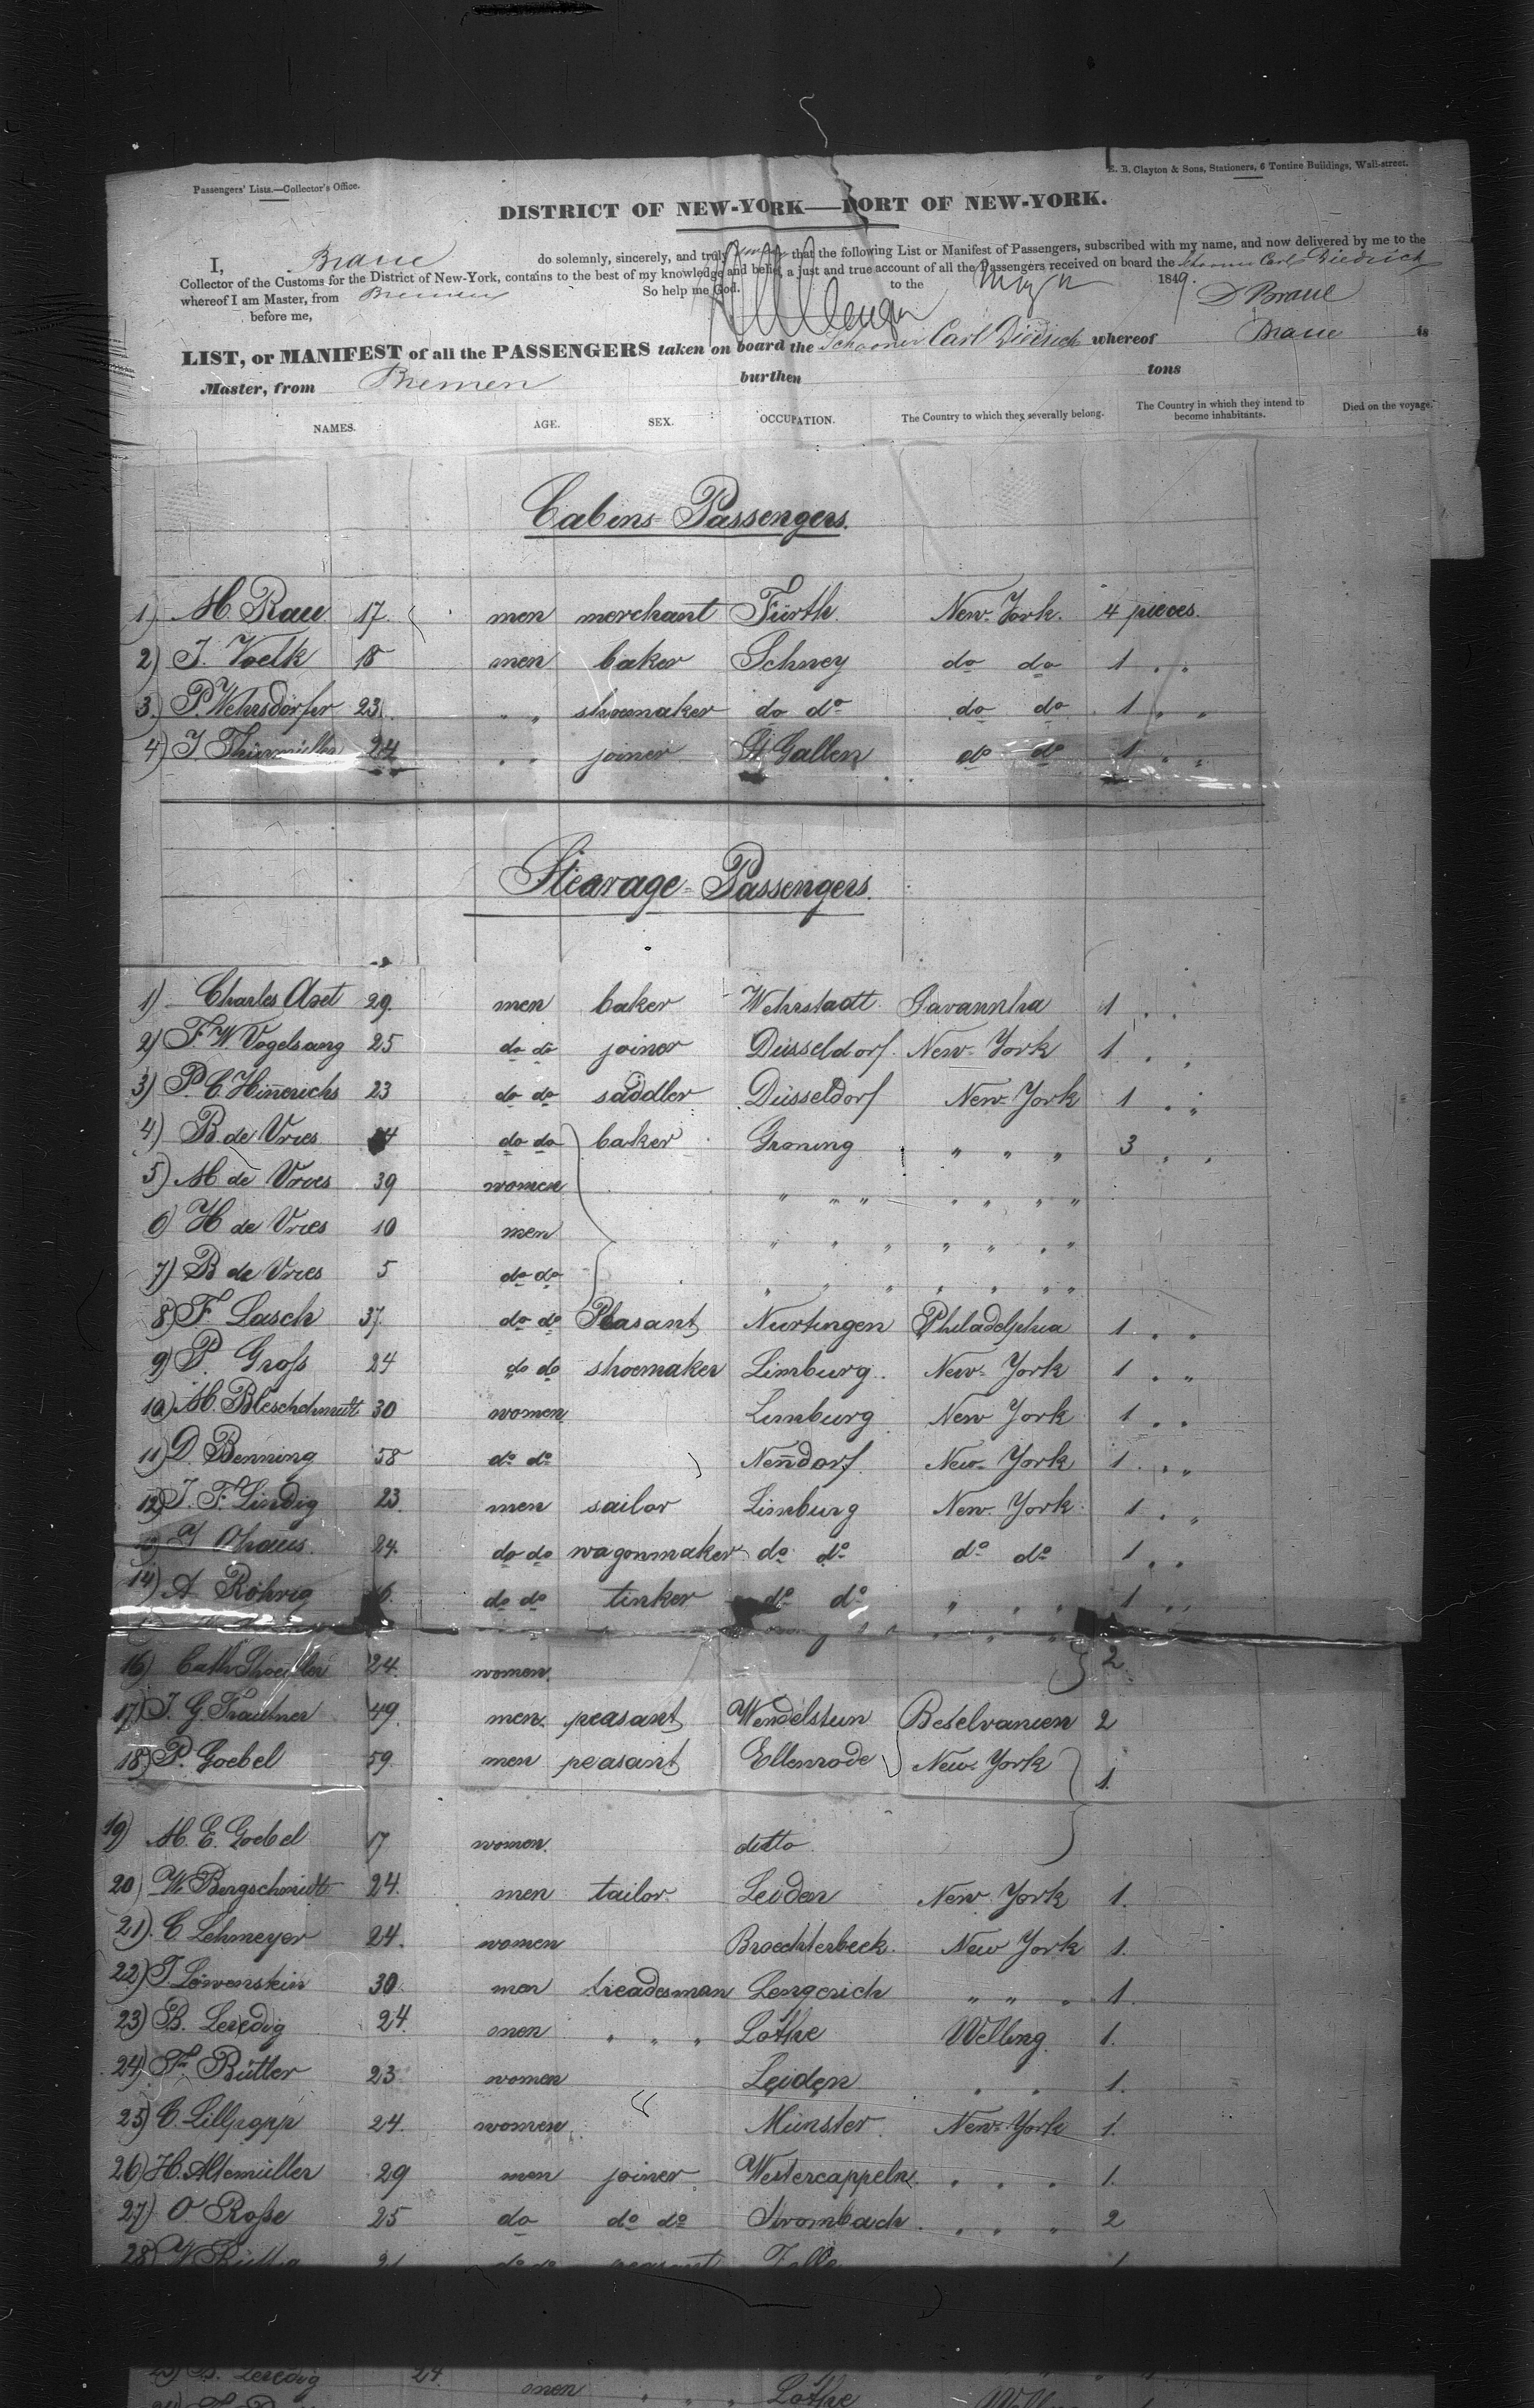 Passengers' Lists.—Collector's Office.
E. B. Clayton & Sons, Stationers, 6 Tontine Buildings, Wall-street.
DISTRICT OF NEW-YORK—PORT OF NEW-YORK.
I, Braue do solemnly, sincerely, and truly that the following List or Manifest of Passengers, subscribed with my name, and now delivered by me to the
Collector of the Customs for the District of New-York, contains to the best of my knowledge and belief, a just and true account of all the Passengers received on board the Schooner Carl Diedrich
whereof I am Master, from Bremen to the 1849.
So help me God. D Braue
before me,
LIST, or MANIFEST of all the PASSENGERS taken on board the Schooner Carl Diedrich whereof Braue is
Master, from Bremen burthen tons
NAMES. AGE. SEX. OCCUPATION. The Country to which they severally belong. The Country in which they intend to become inhabitants. Died on the voyage.
Cabins-Passengers.
1) M. Rau 17. men merchant Fürth. New-York. 4 pieces.
2) J. Voelk 18 men baker Schney do do 1 " "
3.) P. Wehrsdörfer 23. " " shoemaker do do do do 1 " "
4) J 24 " " joiner St Gallen do do 1 " "
Stearage-Passengers.
1) Charles Axet 29. men baker Wehrstadt Savannha 1 " "
2) F. W. Vogelsang 25 do do joiner Düsseldorf. New-York 1 " "
3) P. C. Hinerichs 23 do do saddler Düsseldorf New-York 1 " "
4) B de Vries do do baker Groning " " " 3 " "
5) M de Vries 39 women " " " " " " "
6) H de Vries 10 men " " " " " " "
7) B de Vries 5 do do " " " " " " "
8) F. Lasch 37. do do Peasant Nürtingen Philadelphia 1 " "
9) P. Groß 24 do do shoemaker Limburg. New-York 1 " "
10) M. Bleschchmidt 30 women Limburg New York 1 " "
11) D. Benning 58 do do Nendorf. New-York 1 " "
12) J. F. Lindig 23. men sailor Limburg New-York 1 " "
13) J Ohaus. 24. do do wagonmaker do do do do 1 " "
14) A Röhrig do do tinker do do " " " 1 " "
16) Cath 24. women. 2
17) J. G. Trautner 49. men. peasant Wendelstein Beselvanien 2
18) P. Goebel 59. men peasant Ellenrode New-York 1.
19) M. E. Goebel 17 women. ditto
20) W. Bergschmidt 24. men tailor Leiden New-York 1.
21). C. Lehmeyer 24. women Brochterbeck. New York 1.
22) J. Löwenstein 30. men treadesman Lengerich " " " 1.
23) B. Leredig 24. men " " " Lothe Welling. 1.
24) Fr. Bütler 23 women Leiden " " 1.
25) C. Lillpopp 24. women. Münster. New-York 1.
26) H. Altemüller 29 men joiner. Westercappeln. " " " 1.
27) O Roße 25 do do do Strombach. " " " 2
28) do do peasant 1
23) B. Leredig 24. men " " " Lothe